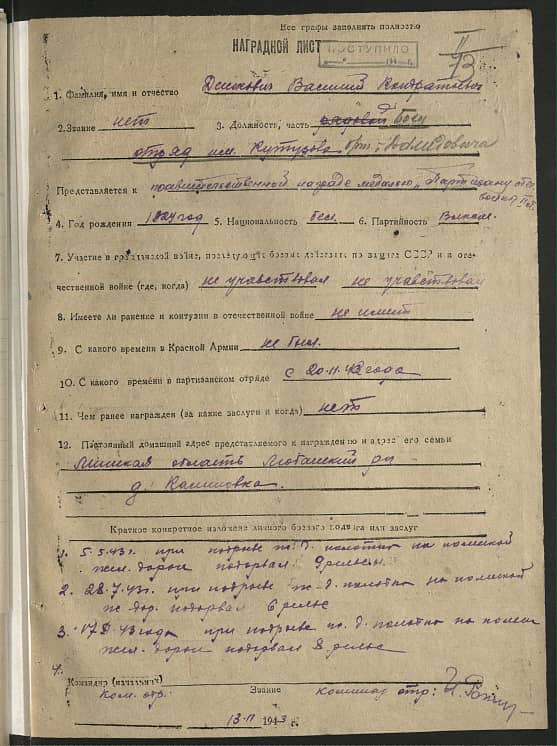 Все графы заполнять полностью
НАГРАДНОЙ ЛИСТ
ПОСТУПИЛО
1. Фамилия, имя и отчество Василий Кондратьевич
2.Звание нет 3. Должность, часть рядовой Боец
отряд им. Кутузова
Представляется к правительственной награде медалью "Партизану от.
войны" II ст.
4. Год рождения 1924 год 5. Национальность бел. 6. Партийность
7. Участие в гражданской войне, последующие боевые действиях по защите СССР и в оте-
чественной войне (где, когда) не учавствовал не учавствовал
8. Имеете ли ранение и контузии в отечественной войне не имеет
9. С какого времени в Красной Армии не был.
10. С какого времени в партизанском отряде с 20.11.42 года
11. Чем ранее награжден (за какие заслуги и когда) нет
12. Постоянный домашний адрес представляемого к награждению и адрес его семьи
Минская область р-н
д. Калиновка.
Краткое конкретное изложение личного боевого подвига или заслуг
1. 5.5.43г. при подрыве ж. д. полотна на
жел. дороги подорвал рельсы
2. 28.7.43г. при подрыве ж-д. полотна на
ж-дор. подорвал 6 рельс
3. 43 года при подрыве ж. д. полотна на
жел. дороги подорвал 8 рельс
4.
Командир (начальник)
ком. отр: Звание комиссар отр:
13.11 1943 г.